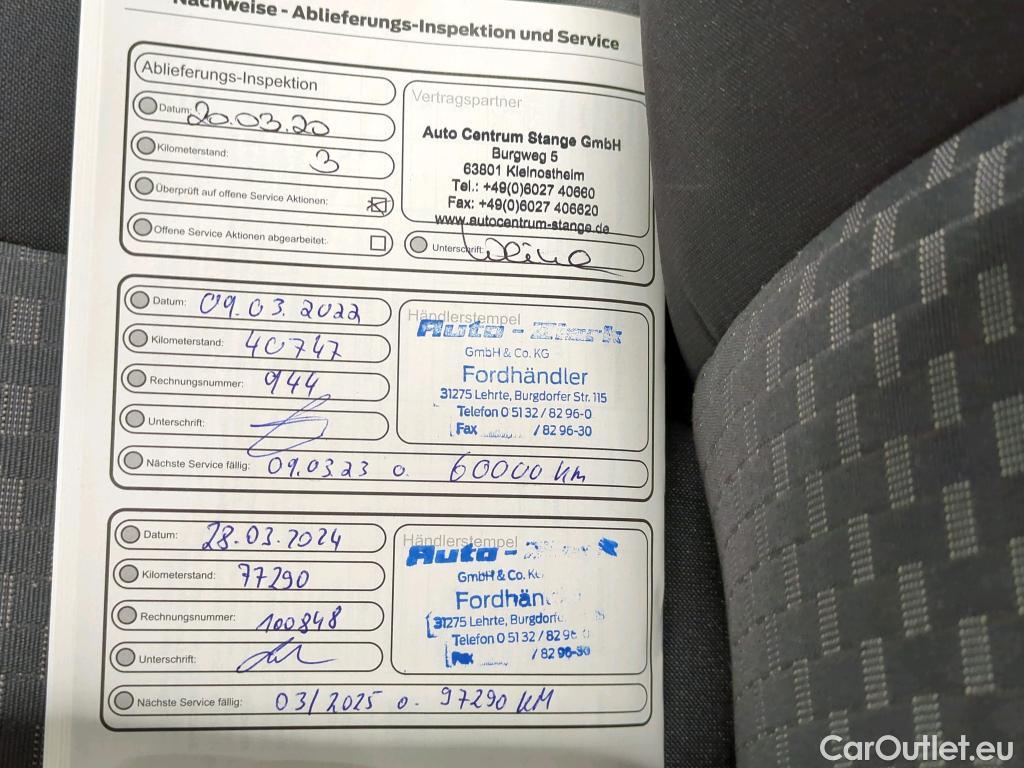 Nachweise - Ablieferungs-Inspektion und Service
Ablieferungs-Inspektion
Datum: 20.03.20
Kilometerstand: 3
Überprüft auf offene Service Aktionen:
Offene Service Aktionen abgearbeitet:
Vertragspartner
Auto Centrum Stange GmbH
Burgweg 5
63801 Kleinostheim
Tel.: +49(0)6027 40660
Fax: +49(0)6027 406620
www.autocentrum-stange.de
Unterschrift:
Datum: 09.03.2022
Kilometerstand: 40747
Rechnungsnummer: 944
Unterschrift:
Händlerstempel
Auto -
GmbH & Co. KG
Fordhändler
31275 Lehrte, Burgdorfer Str. 115
Telefon 0 51 32 / 82 96-0
Fax / 82 96-30
Nächste Service fällig: 09.03.23 o. 60000 Km
Datum: 28.03.2024
Kilometerstand: 77290
Rechnungsnummer: 100848
Unterschrift:
Händlerstempel
Auto -
GmbH & Co.
31275 Lehrte,
Telefon 0 51 32 / 82 96
Fax / 82 96-30
Nächste Service fällig: 03/2025 o. 97290 KM
CarOutlet.eu